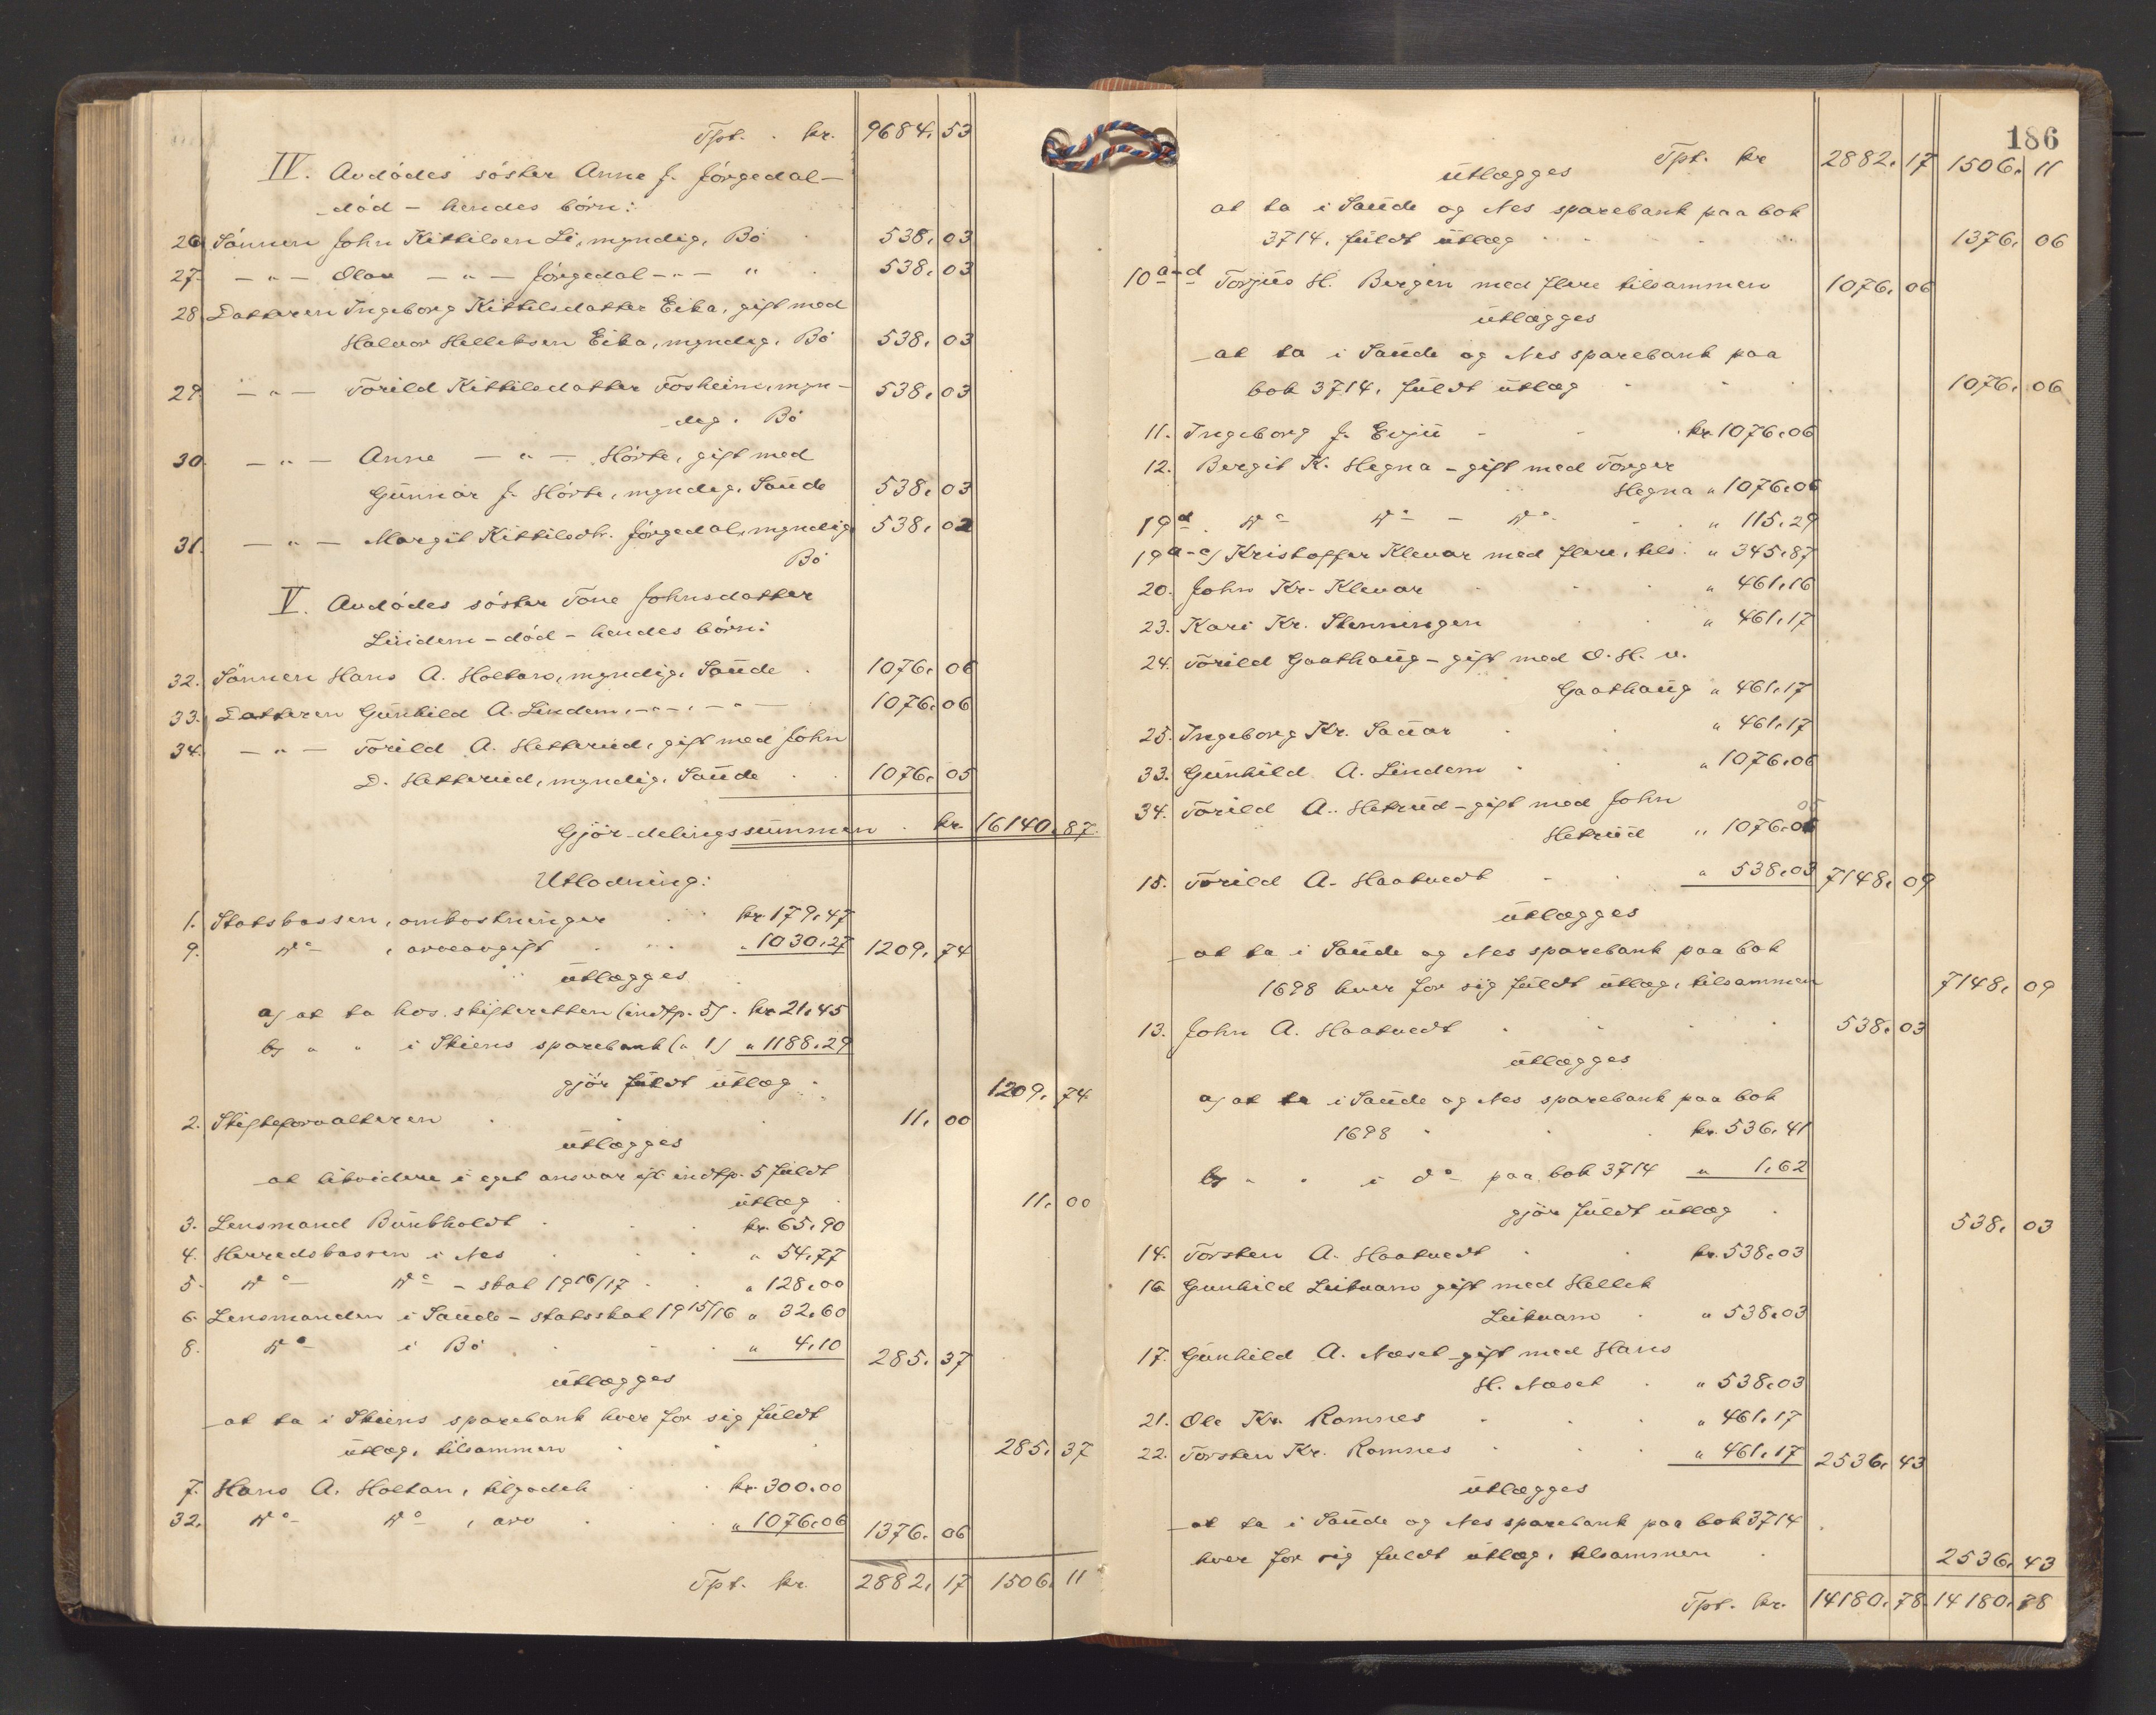 Tpt. kr. 9684, 53
IV. Avdödes söster Anne J. Jörgedal -
död - hendes börn:
26 Sönnen John Kittilsen Li, myndig, Bö 538, 03
27. - " - Olav - " - Jörgedal - " - " 538, 03
28 Datteren Ingeborg Kittilsdatter Eika, gift med
Halvor Helleksen Eika, myndig, Bö 538, 03
29. - " - Torild Kittilsdatter Fosheim, myn- 538, 03
dig. Bö
30. - " - Anne - " - Hörte, gift med
Gunnar J. Hörte, myndig, Saude 538, 03
31. - " - Margit Kittilsdtr. Jörgedal, myndig 538, 02
Bö
V. Avdödes söster Tone Johnsdatter
Lindem - död - hendes börn:
32. Sönnen Hans A. Holtan, myndig, Saude 1076, 06
33. Datteren Gunhild A. Lindem, - " - , - " - 1076, 06
34. - " - Torild A. Hetterud, gift med John
D. Hetterud, myndig, Saude 1076, 05
Gjör delingssummen kr. 16140, 87
Utlodning:
1. Statskassen, omkostninger kr. 179,47
9. Do , arveavgift " 1030,27 1209, 74
utlægges
a) at ta hos skifteretten (indtp. 5) kr. 21,45
b) " " i Skiens sparebank (" 1) " 1188,29
gjör fuldt utlæg 1209, 74
2. Skifteforvalteren 11, 00
utlægges
at likvidere i eget ansvar ift. indtp. 5 fuldt
utlæg 11, 00
3. Lensmand Bunkholdt kr. 65,90
4. Herredskassen i Nes " 54,77
5. Do Do - skat 1916/17 " 128,00
6. Lensmanden i Saude - statsskat 1915/16 " 32,60
8. Do i Bö " 4,10 285, 37
utlægges
at ta i Skiens sparebank hver for sig fuldt
utlæg, tilsammen 285, 37
7. Hans A. Holtan, tilgodeh. kr. 300,00
32. Do Do , arv " 1076,06 1376, 06
Tpt. kr. 2882, 17 1506, 11
186
Tpt. kr 2882, 17 1506, 11
utlægges
at ta i Saude og Nes sparebank paa bok
3714, fuldt utlæg 1376, 06
10 a-d Torjus H. Bergen med flere tilsammen 1076, 06
utlægges
at ta i Saude og Nes sparebank paa
bok 3714, fuldt utlæg 1076, 06
11. Ingeborg J. Evju kr. 1076,06
12. Bergit K. Hegna - gift med Torger
Hegna " 1076,06
19 d. Do Do - Do " 115,29
19 a-c) Kristoffer Klevar med flere, tils. " 345,87
20. John Kr. Klevar " 461,16
23. Kari Kr. Stenningen " 461,17
24. Torild Gaathaug - gift med O. H. v.
Gaathaug " 461,17
25. Ingeborg Kr. Sauar " 461,17
33. Gunhild A. Lindem " 1076,06
34. Torild A. Hetrud - gift med John
Hetrud " 1076,05
15. Torild A. Haatvedt " 538,03 7148, 09
utlægges
at ta i Saude og Nes sparebank paa bok
1698 hver for sig fuldt utlæg, tilsammen 7148, 09
13. John A. Haatvedt 538, 03
utlægges
a) at ta i Saude og Nes sparebank paa bok
1698 kr. 536,41
b) " " i do paa bok 3714 " 1,62
gjör fuldt utlæg 538, 03
14. Torsten A. Haatvedt kr. 538,03
16. Gunhild Leikvam gift med Hellek
Leikvam " 538,03
17. Gunhild A. Næset gift med Hans
H. Næset " 538,03
21. Ole Kr. Romnes " 461,17
22. Torsten Kr. Romnes " 461,17 2536, 43
utlægges
at ta i Saude og Nes sparebank paa bok 3714
hver for sig fuldt utlæg, tilsammen 2536, 43
Tpt. kr. 14180, 78 14180, 78